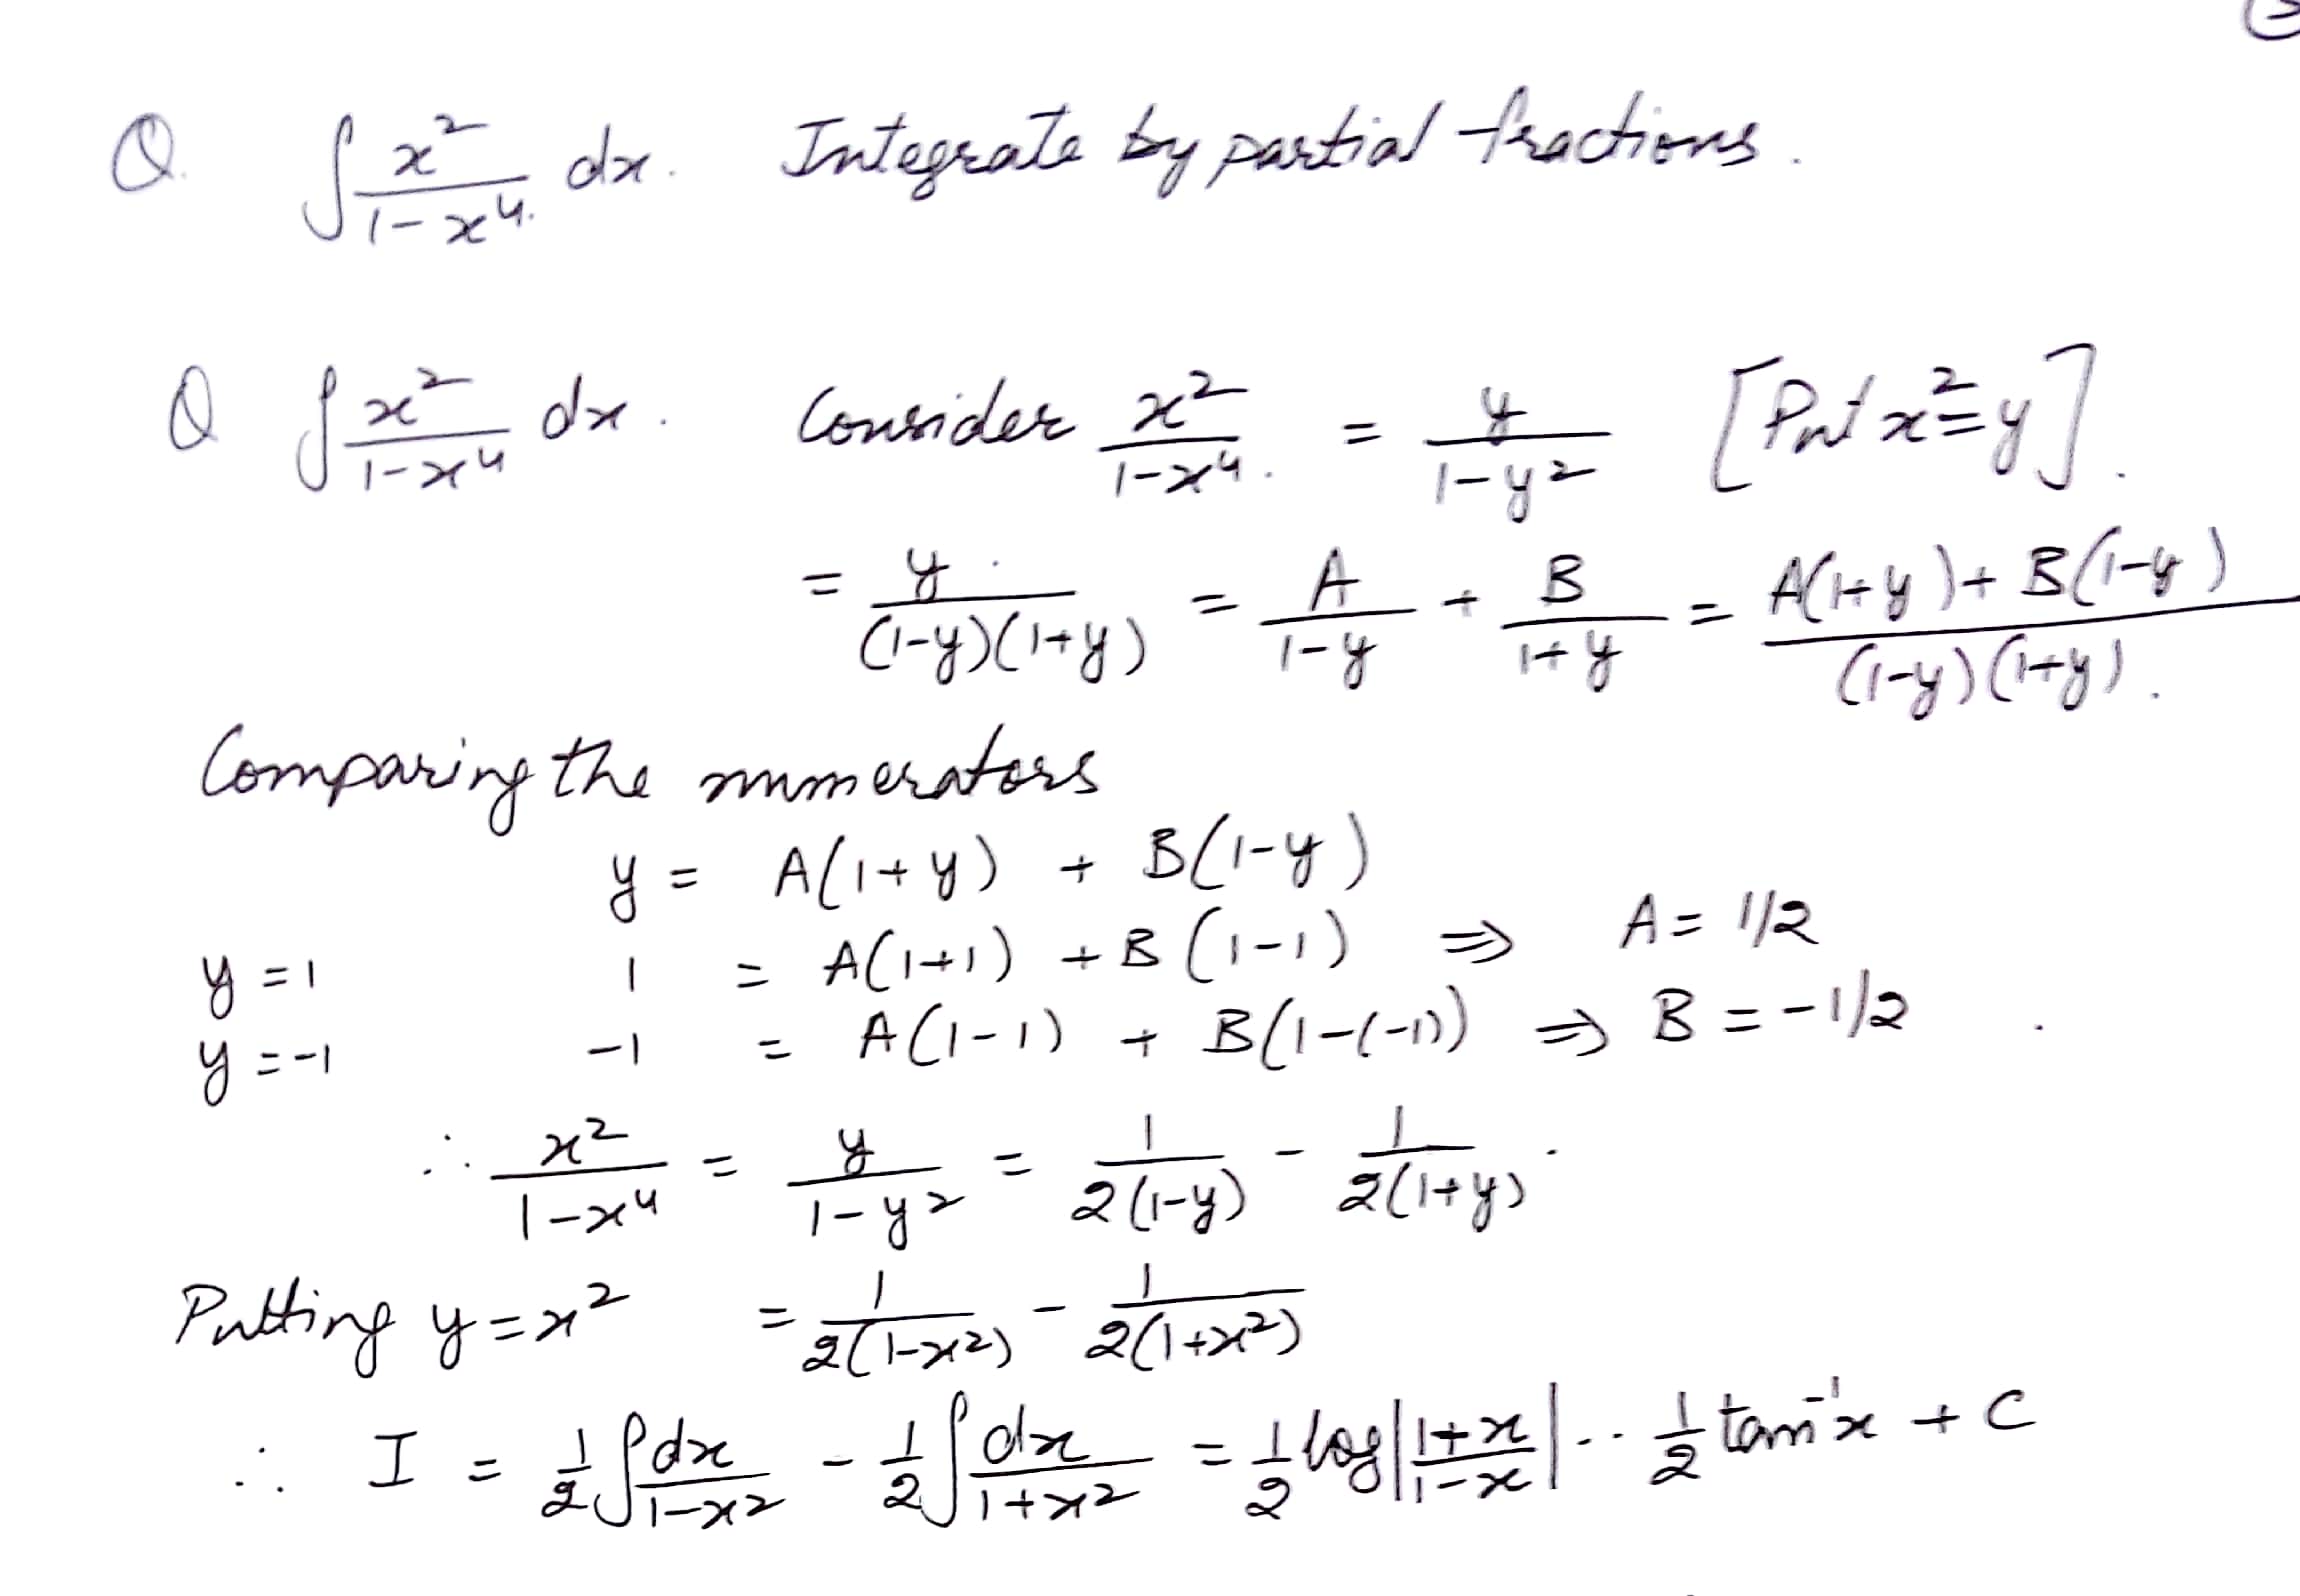 Q. ∫ x²/(1-x⁴) dx. Integrate by partial fractions.
Q ∫ x²/(1-x⁴) dx. Consider x²/(1-x⁴) = y/(1-y²) [Put x²=y].
= y/((1-y)(1+y)) = A/(1-y) + B/(1+y) = (A(1+y)+B(1-y))/((1-y)(1+y)).
Comparing the numerators
y = A(1+y) + B(1-y)
y=1 1 = A(1+1) + B(1-1) ⇒ A = 1/2
y=-1 -1 = A(1-1) + B(1-(-1)) ⇒ B = -1/2.
∴ x²/(1-x⁴) = y/(1-y²) = 1/(2(1-y)) - 1/(2(1+y)).
Putting y=x² = 1/(2(1-x²)) - 1/(2(1+x²))
∴ I = 1/2 ∫ dx/(1-x²) - 1/2 ∫ dx/(1+x²) = 1/2 log|(1+x)/(1-x)| - 1/2 tan⁻¹x + C